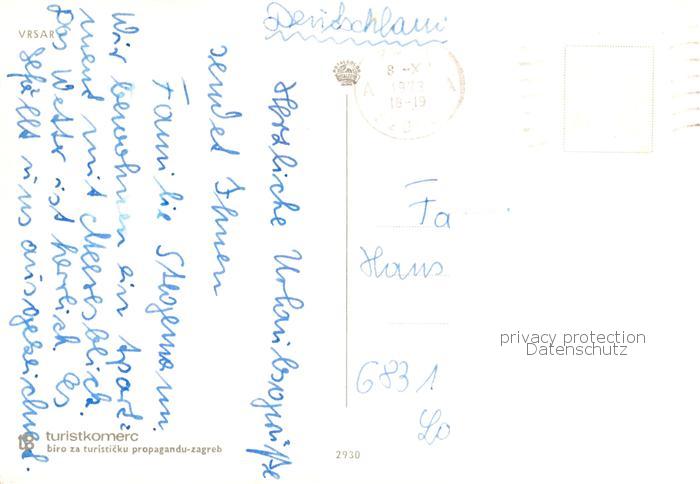 VRSAR
Deutschland
Herzliche Urlaubsgrüße
sendet Ihnen
Familie Stegemann.
Wir bewohnen ein Apart-
ment mit Meeresblick.
Das Wetter ist herrlich. Es
gefällt uns ausgezeichnet.
8 -X
1973
18-19
A A
Fa
Hans
6831
Lo
privacy protection
Datenschutz
turistkomerc
biro za turističku propagandu-zagreb
2930